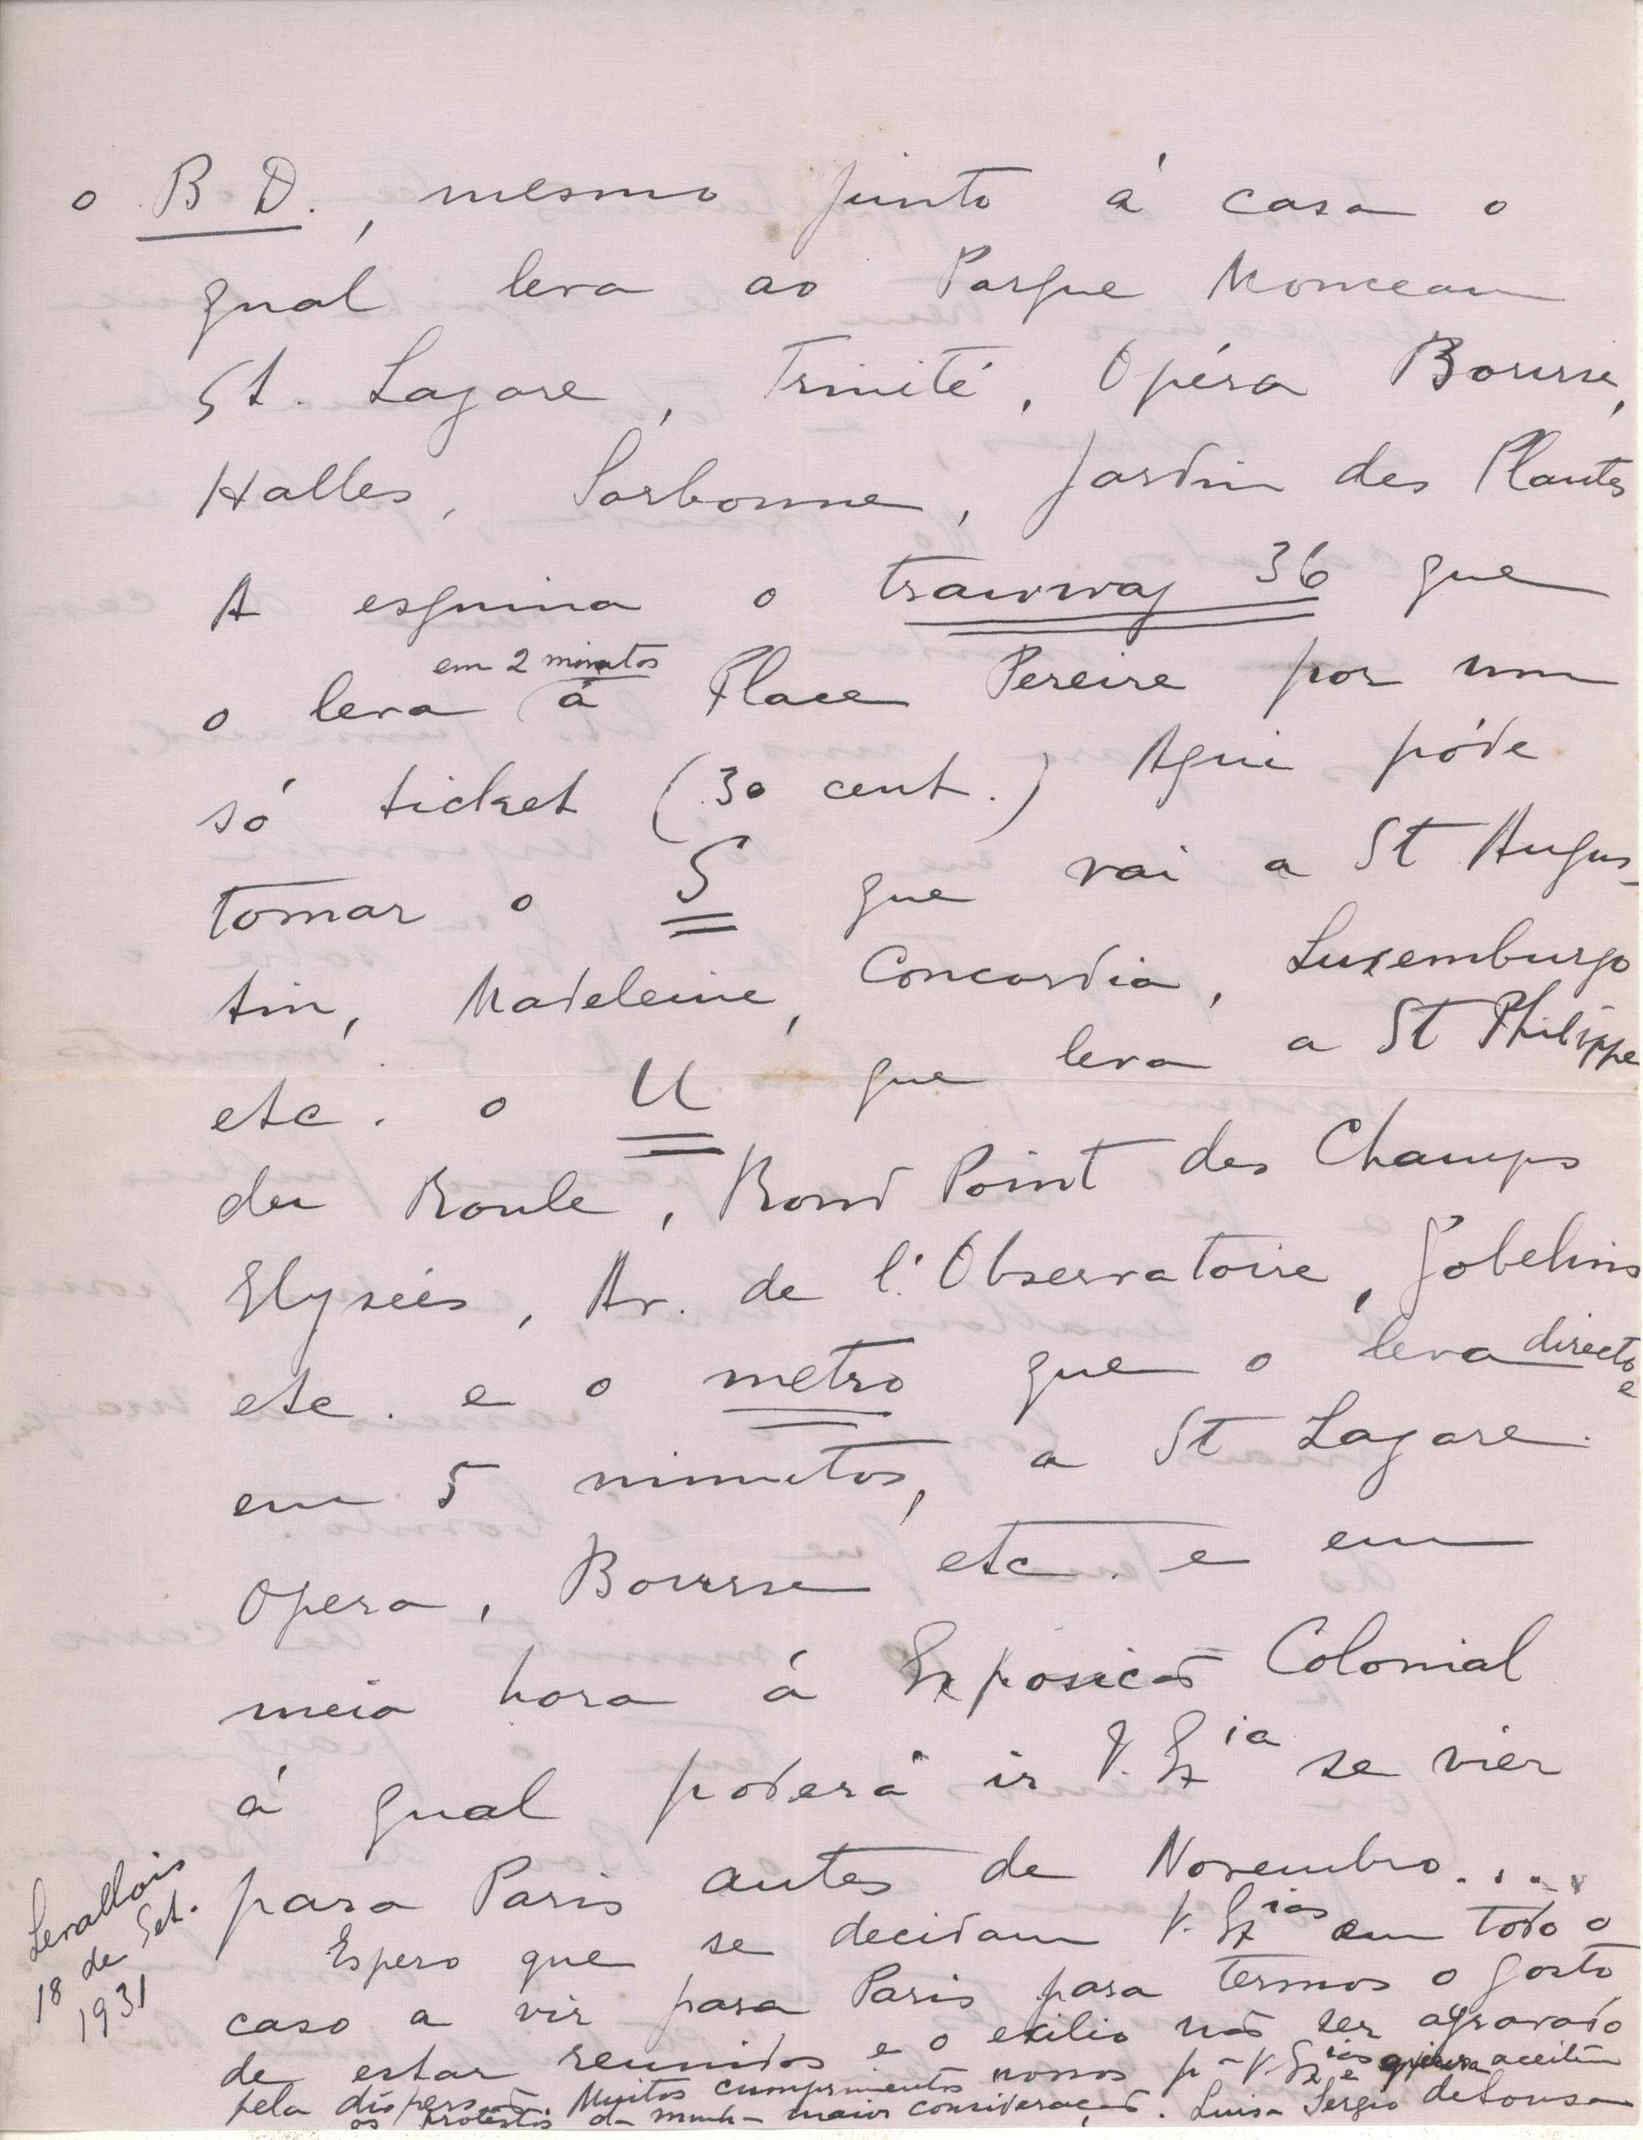 o B D., mesmo junto á casa o
qual leva ao Parque Monceau
St. Lazare, Trinité, Opéra Bourse,
Halles, Sorbonne, Jardin des Plantes
A esquina o tramway 36 que
o leva em 2 minutos á Place Pereire por um
só ticket (30 cent.) Aqui póde
tomar o S que vai a St Augus-
tin, Madeleine, Concordia, Luxemburgo
etc. o U que leva a St Philippe
du Roule, Rond Point des Champs
Elyseés, Av. de l'Observatoire, Gobelins
etc. e o metro que o leva directo e
em 5 minutos, a St Lazare.
Opera, Bourse etc. e em
meia hora á Exposicão Colonial
á qual poderá ir V. Ex ia se vier
para Paris antes de Novembro....
Espero que se decidam V. Ex ias em todo o
caso a vir para Paris para termos o gosto
de estar reunidos e o exilio não ser agravado
pela dispersão. Muitos cumprimentos nossos pª V. Ex ias e aceitem
os protestos da minha maior consideração. Luisa Sergio de Sousa
Levallois
18 de Set.
1931